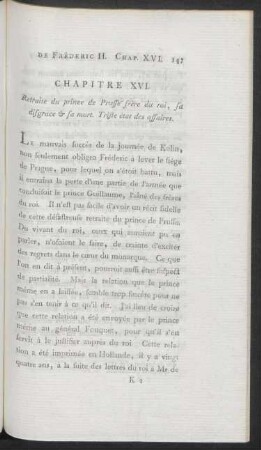 DE FRÉDERIC II. CHAP. XVI. 147
CHAPITRE XVI.
Retraite du prince de Prusse frère du roi, sa
disgrace & sa mort. Triste état des affaires.
Le mauvais succès de la journée de Kollin,
non seulement obligea Fréderic à lever le siège
de Prague, pour lequel on s'étoit battu, mais
il entraîna la perte d'une partie de l'armée que
conduisoit le prince Guillaume, l'aîné des frères
du roi. Il n'est pas facile d'avoir un récit fidelle
de cette désastreuse retraite du prince de Prusse.
Du vivant du roi, ceux qui auroient pu en
parler, n'osoient le faire, de crainte d'exciter
des regrets dans le cœur du monarque. Ce que
l'on en dit à présent, pourroit aussi être suspect
de partialité. Mais la relation que le prince
même en a laissée, semble trop sincère pour ne
pas s'en tenir à ce qu'il dit. J'ai lieu de croire
que cette relation a été envoyée par le prince
même au général Fouquet, pour qu'il s'en
servît à le justifier auprès du roi. Cette relation
a été imprimée en Hollande, il y a vingt
quatre ans, à la suite des lettres du roi à Mr de
K 2